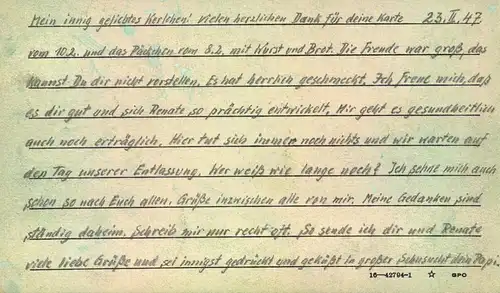 Mein innig geliebtes Kerlchen! Vielen herzlichen Dank für deine Karte 23.II.47
vom 10.2. und das Päckchen vom 8.2. mit Wurst und Brot. Die Freude war groß, das
kannst Du dir nicht vorstellen. Es hat herrlich geschmeckt. Ich freue mich, daß
es dir gut und sich Renate so prächtig entwickelt. Mir geht es gesundheitlich
auch noch erträglich. Hier tut sich immer noch nichts und wir warten auf
den Tag unserer Entlassung. Wer weiß wie lange noch? Ich sehne mich auch
schon so nach Euch allen. Grüße inzwischen alle von mir. Meine Gedanken sind
ständig daheim. Schreib mir nur recht oft. So sende ich dir und Renate
viele liebe Grüße und sei innigst gedrückt und geküßt in großer Sehnsucht dein Papi.
16—42794-1 ☆ GPO